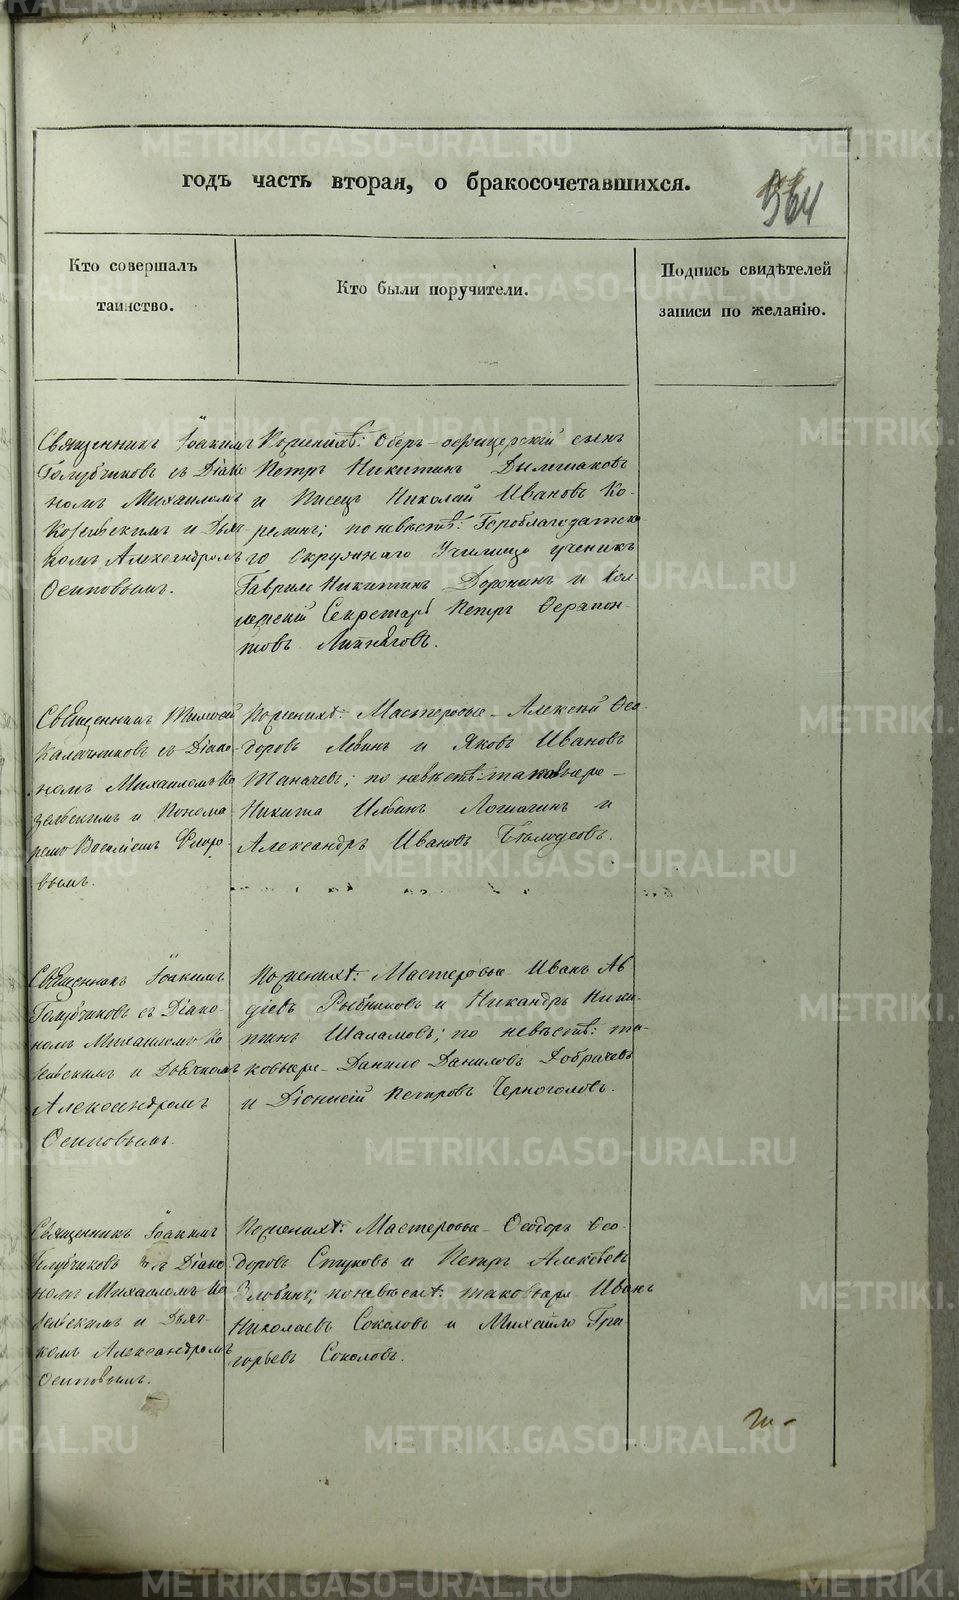 годъ часть вторая, о бракосочетавшихся.
564
Кто совершалъ
таинство.
Кто были поручители.
Подпись свидѣтелей
записи по желанію.
Священникъ Іоакимъ
Голубчиковъ съ Діако
номъ Михаиломъ
Козельскимъ и Дья
комъ Александромъ
Осиповымъ.
По женихѣ: Оберъ-офицерскій сынъ
Петръ Никитинъ
и Писецъ Николай Ивановъ Ко-
; по невѣстѣ: Гороблагодатска
го Окружнаго Училища ученикъ
Гаврило Никитинъ Доронинъ и Кол
лежскій Секретарь Петръ Ферапон-
товъ
Священникъ Тимофей
Калачниковъ съ Діако
номъ Михаиломъ Ко
зельскимъ и Понома
ремъ Василіемъ Флоро
вымъ.
По женихѣ: Мастеровые - Алексѣй Ѳео-
доровъ Левинъ и Яковъ Ивановъ
; по невѣстѣ: таковые -
Никита Ильинъ Логиагинъ и
Александръ Ивановъ
Священникъ Іоакимъ
Голубчиковъ съ Діако-
номъ Михаиломъ Ко
зельскимъ и Дьячкомъ
Александромъ
Осиповымъ.
По женихѣ: Мастеровые Иванъ Ав
діевъ Рыбниковъ и Никандръ Ники-
тинъ Шаламовъ; по невѣстѣ: та-
ковые - Данило Даниловъ Добрачевъ
и Діонисій Петровъ Черноголовъ.
Священникъ Іоакимъ
Голубчиковъ съ Діако
номъ Михаиломъ Ко
зельскимъ и Дьяч-
комъ Александромъ
Осиповымъ.
По женихѣ: Мастеровые - Ѳеодоръ Ѳео-
доровъ Стуковъ и Петръ Алексѣевъ
Злобинъ; по невѣстѣ: таковые Иванъ
Николаевъ Соколовъ и Михайло Гри
горьевъ Соколовъ.
METRIKI.GASO-URAL.RU